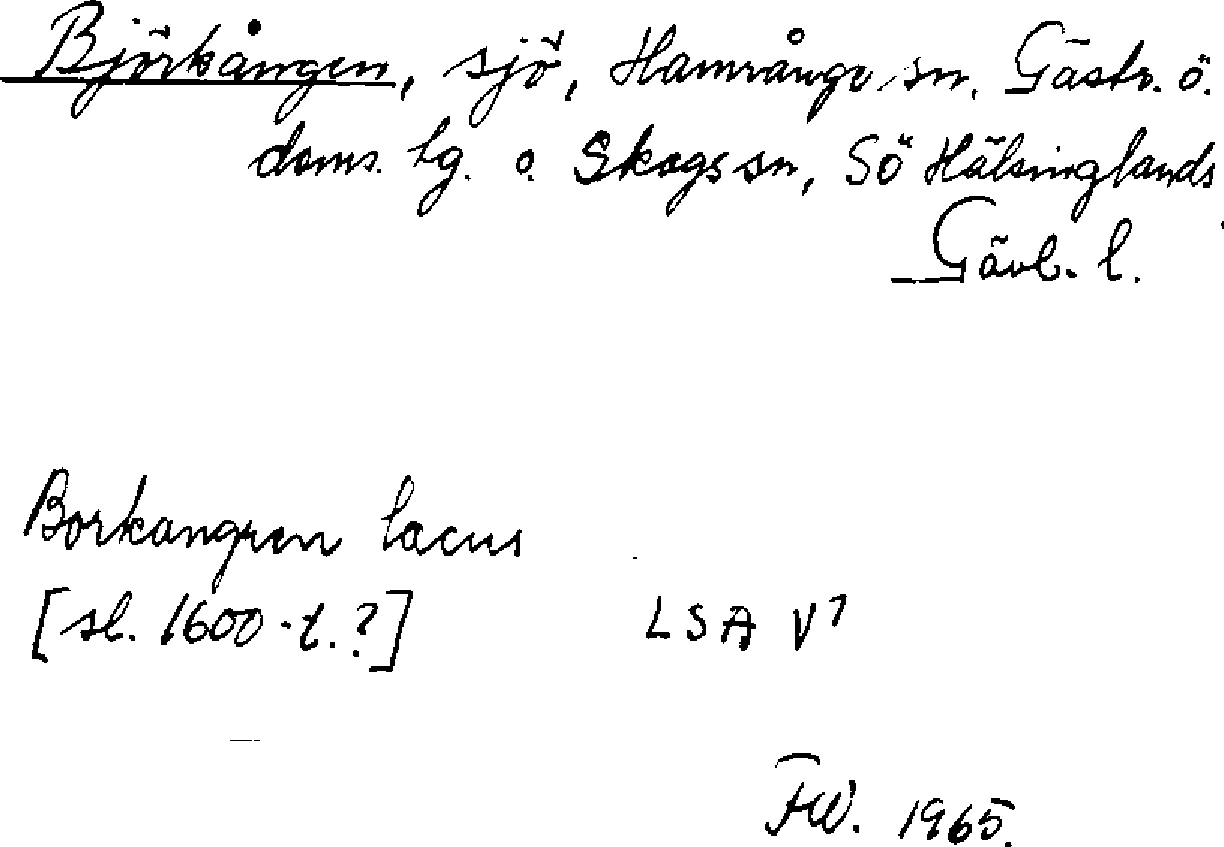 Björkången, sjö, Hamrånge sn, Gästr. ö.
doms. lg. o. Skogs sn, Sö Hälsinglands
Gävl. l.
Borkangren lacus
[sl. 1600-t.?]
LSA V⁷
FW. 1965.